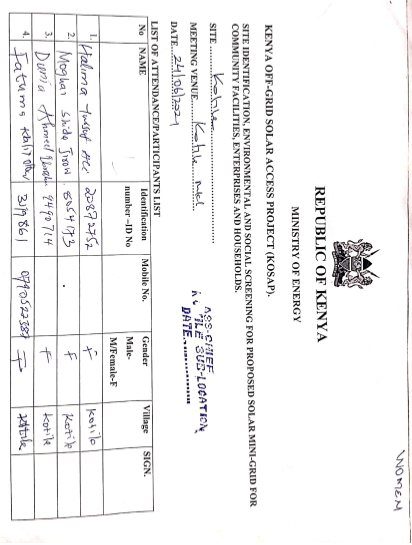 WOMEN
REPUBLIC OF KENYA
MINISTRY OF ENERGY
KENYA OFF-GRID SOLAR ACCESS PROJECT (KOSAP).
SITE IDENTIFICATION, ENVIRONMENTAL AND SOCIAL SCREENING FOR PROPOSED SOLAR MINI-GRID FOR
COMMUNITY FACILITIES, ENTERPRISES AND HOUSEHOLDS.
SITE
MEETING VENUE Kotile
DATE 24/06/2021
ASS. CHIEF
SUB-LOCATION
DATE
LIST OF ATTENDANCE/PARTICIPANTS LIST
No NAME Identification number –ID No Mobile No. Gender Male- M/Female-F Village SIGN.
1. Halima Yusuf 20872752 F Kotile
2. F Kotile
3. Ahmed 9490714 F Kotile
4. Fatuma F Kotile